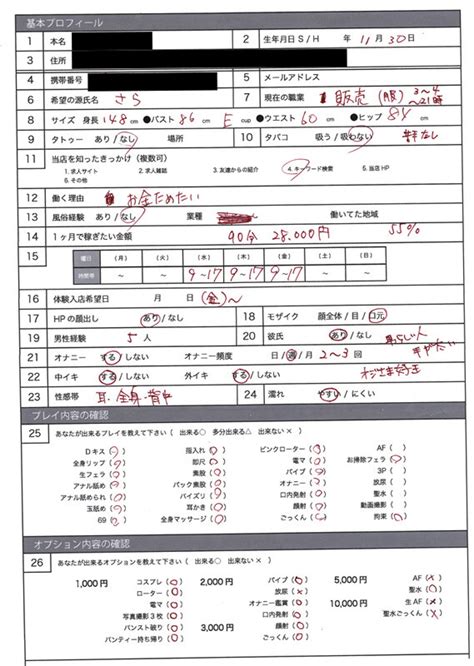 基本プロフィール
1 本名
2 生年月日 S / H 年 11 月 30 日
3 住所
4 携帯番号
5 メールアドレス
6 希望の源氏名 さら
7 現在の職業 販売 3〜4 〜21時
8 サイズ 身長 148 cm ●バスト 86 cm E cup ●ウエスト 60 cm ●ヒップ 84 cm
9 タトゥー あり / なし 場所
10 タバコ 吸う / 吸わない
11 当店を知ったきっかけ (複数可)
1. 求人サイト 2. 求人雑誌 3. 友達からの紹介 4. キーワード検索 5. 当店 HP
6. その他
12 働く理由 お金ためたい
13 風俗経験 あり / なし 業種 働いてた地域
14 1ヶ月で稼ぎたい金額 90分 28.000円 55%
15 曜日 (月) (火) (水) (木) (金) (土) (日)
時間帯 〜 〜 9〜17 9〜17 9〜17 〜 〜
16 体験入店希望日 月 日 (金)〜
17 HPの顔出し あり / なし
18 モザイク 顔全体 / 目 / 口元
19 男性経験 5 人
20 彼氏 あり / なし
21 オナニー する / しない オナニー頻度 日 / 週 / 月 2〜3 回
22 中イキ する / しない 外イキ する / しない オジさま好き
23 性感帯 耳・全身・背中
24 濡れ やすい / にくい
プレイ内容の確認
25 あなたが出来るプレイを教えて下さい (出来る○ 多分出来る△ 出来ない×)
Dキス (○) 指入れ (○) ピンクローター (○) AF ( )
全身リップ (○) 即尺 (○) 電マ (○) お掃除フェラ (○)
生フェラ (○) 素股 (○) バイブ (○) 3P ( )
アナル舐め (○) バック素股 (○) オナニー (○) 放尿 ( )
アナル舐められ (○) パイズリ (○) 口内発射 (○) 聖水 ( )
玉舐め (○) 耳かき (○) 顔射 (○) 動画撮影 ( )
69 (○) 全身マッサージ (○) ごっくん (○) 拘束 (○)
オプション内容の確認
26 あなたが出来るオプションを教えて下さい (出来る○ 出来ない×)
1,000円 コスプレ (○) 2,000円 バイブ (○) 5,000円 AF (×)
ローター (○) 放尿 (×) 聖水 (○)
電マ (○) オナニー鑑賞 (○) 10,000円 生AF (×)
写真撮影3枚 (○) 口内発射 (○) 聖水ごっくん (×)
パンスト破り (○) 3,000円 顔射 (○)
パンティー持ち帰り (○) ごっくん (○)